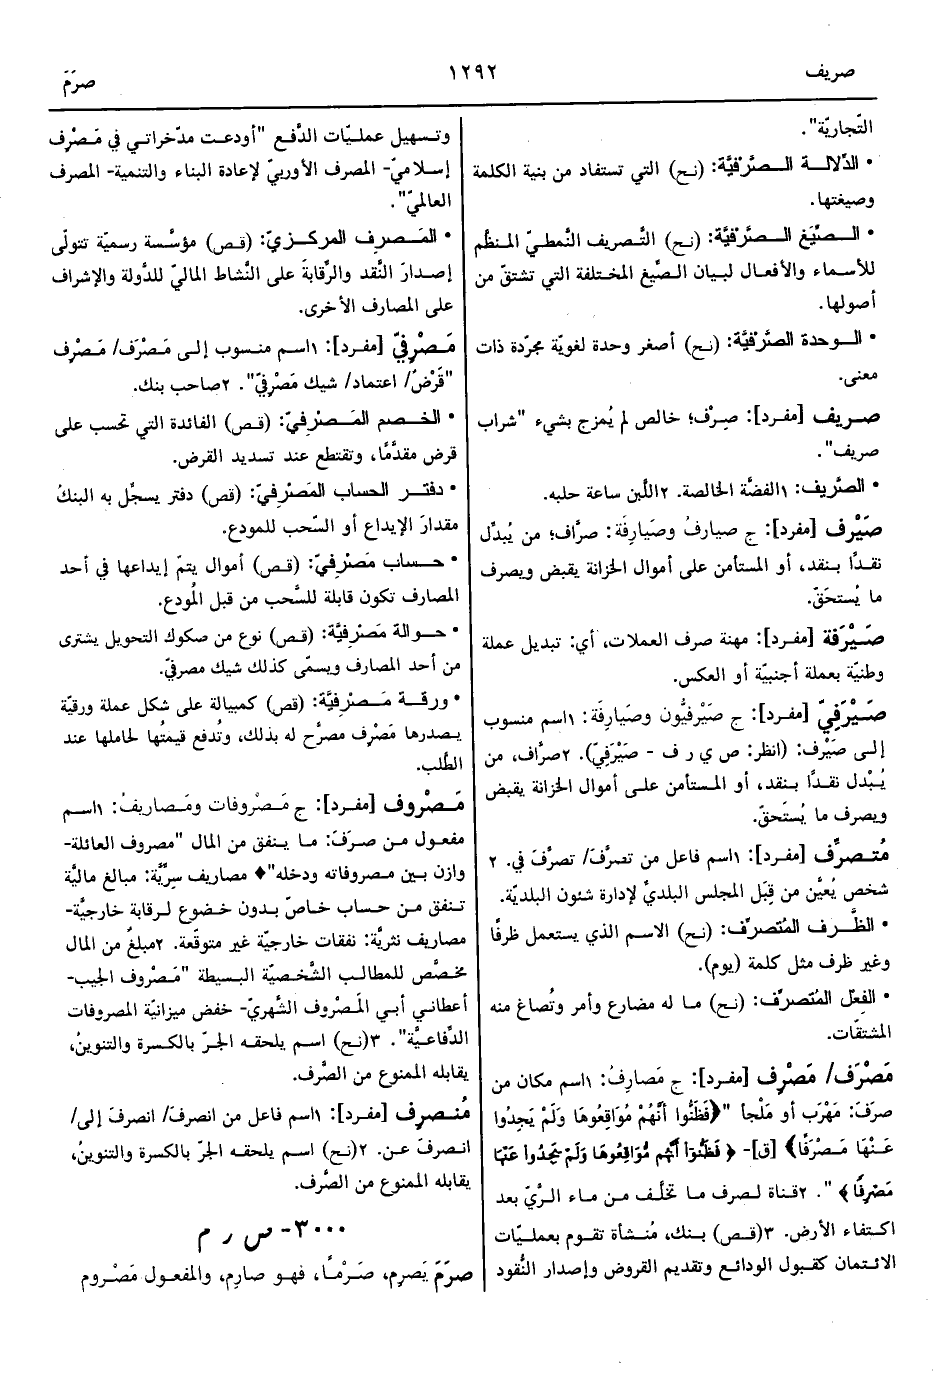 صريف
١٢٩٢
صرَمَ
التّجاريّة".
• الدّلالة الصَّرْفيَّة: (نح) التي تستفاد من بنية الكلمة
وصيغتها.
• الصِّيَغ الصَّرْفيَّة: (نح) التَّصريف النَّمطيّ المنظّم
للأسماء والأفعال لبيان الصِّيغ المختلفة التي تشتقّ من
أصولها.
• الوحدة الصَّرْفيَّة: (نح) أصغر وحدة لغويّة مجرّدة ذات
معنى.
صريف [مفرد]: صِرْف؛ خالص لم يُمزج بشيء "شراب
صريف".
• الصَّريف: ١الفضّة الخالصة. ٢اللَّبن ساعة حلبه.
صَيْرف [مفرد]: ج صيارفُ وصَيارِفَة: صرَّاف؛ من يُبدِّل
نقدًا بنقد، أو المستأمن على أموال الخزانة يقبض ويصرف
ما يُستحَقّ.
صَيْرَفة [مفرد]: مهنة صرف العملات، أي: تبديل عملة
وطنيّة بعملة أجنبيّة أو العكس.
صَيْرَفيّ [مفرد]: ج صَيْرفيُّون وصَيارِفَة: ١اسم منسوب
إلى صَيْرف: (انظر: ص ي ر ف - صَيْرَفيّ). ٢صرَّاف، من
يُبْدل نقدًا بنقد، أو المستأمن على أموال الخزانة يقبض
ويصرف ما يُستَحقّ.
مُتصرِّف [مفرد]: ١اسم فاعل من تصرَّفَ/ تصرَّفَ في. ٢
شخص يُعيَّن من قِبَل المجلس البلديّ لإدارة شئون البلديّة.
• الظَّرف المُتصرِّف: (نح) الاسم الذي يستعمل ظرفًا
وغير ظرف مثل كلمة (يوم).
• الفعل المُتصرِّف: (نح) ما له مضارع وأمر وتُصاغ منه
المشتقّات.
مَصْرَف/ مَصْرِف [مفرد]: ج مَصارِفُ: ١اسم مكان من
صرَفَ: مَهْرَب أو مَلْجأ "﴿فَظَنُّوا أَنَّهُمْ مُوَاقِعُوهَا وَلَمْ يَجِدُوا
عَنْهَا مَصْرَفًا﴾ [ق]- ﴿فَظَنُّوا أَنَّهُم مُّوَاقِعُوهَا وَلَمْ يَجِدُوا عَنْهَا
مَصْرِفًا﴾ ". ٢قناة لصرف ما تخلّف من ماء الرّيّ بعد
اكتفاء الأرض. ٣(قص) بنك، مُنشأة تقوم بعمليّات
الائتمان كقبول الودائع وتقديم القروض وإصدار النُّقود
وتسهيل عمليّات الدَّفع "أودعت مدّخراتي في مَصْرِف
إسلاميّ- المصرف الأوربيّ لإعادة البناء والتنمية- المصرف
العالميّ".
• المَصرِف المركزيّ: (قص) مؤسَّسة رسميّة تتولّى
إصدارَ النَّقد والرِّقابةَ على النَّشاط الماليّ للدَّولة والإشراف
على المصارف الأخرى.
مَصْرفيّ [مفرد]: ١اسم منسوب إلى مَصْرَف/ مَصْرِف
"قَرْضٌ/ اعتماد/ شيك مَصْرفيّ". ٢صاحب بنك.
• الخصم المَصْرفيّ: (قص) الفائدة التي تحسب على
قرض مقدَّمًا، وتقتطع عند تسديد القرض.
• دفتر الحساب المَصْرفيّ: (قص) دفتر يسجِّل به البنكُ
مقدارَ الإيداع أو السَّحب للمودع.
• حساب مَصْرفيّ: (قص) أموال يتمّ إيداعها في أحد
المصارف تكون قابلة للسَّحب من قبل المُودع.
• حوالة مَصْرفيَّة: (قص) نوع من صكوك التحويل يشترى
من أحد المصارف ويسمّى كذلك شيك مصرفيّ.
• ورقة مَصْرفيَّة: (قص) كمبيالة على شكل عملة ورقيّة
يصدرها مَصْرِف مصرَّح له بذلك، وتُدفع قيمتُها لحاملها عند
الطَّلب.
مَصْروف [مفرد]: ج مَصْروفات ومَصاريفُ: ١اسم
مفعول من صرَفَ: ما ينفق من المال "مصروف العائلة-
وازن بين مصروفاته ودخله"♦ مصاريف سِرِّيَّة: مبالغ ماليَّة
تنفق من حساب خاصّ بدون خضوع لرقابة خارجيَّة-
مصاريف نثريَّة: نفقات خارجيّة غير متوقّعة. ٢مبلغٌ من المال
مخصَّص للمطالب الشَّخصيّة البسيطة "مَصْروف الجيب-
أعطاني أبي المَصْروف الشَّهريّ- خفض ميزانيّة المصروفات
الدِّفاعيَّة". ٣(نح) اسم يلحقه الجرّ بالكسرة والتنوين،
يقابله الممنوع من الصَّرف.
مُنصرِف [مفرد]: ١اسم فاعل من انصرفَ/ انصرفَ إلى/
انصرفَ عن. ٢(نح) اسم يلحقه الجرّ بالكسرة والتنوين،
يقابله الممنوع من الصَّرف.
٣٠٠٠- ص ر م
صرَمَ يَصرِم، صَرْمًا، فهو صارِم، والمفعول مَصْروم